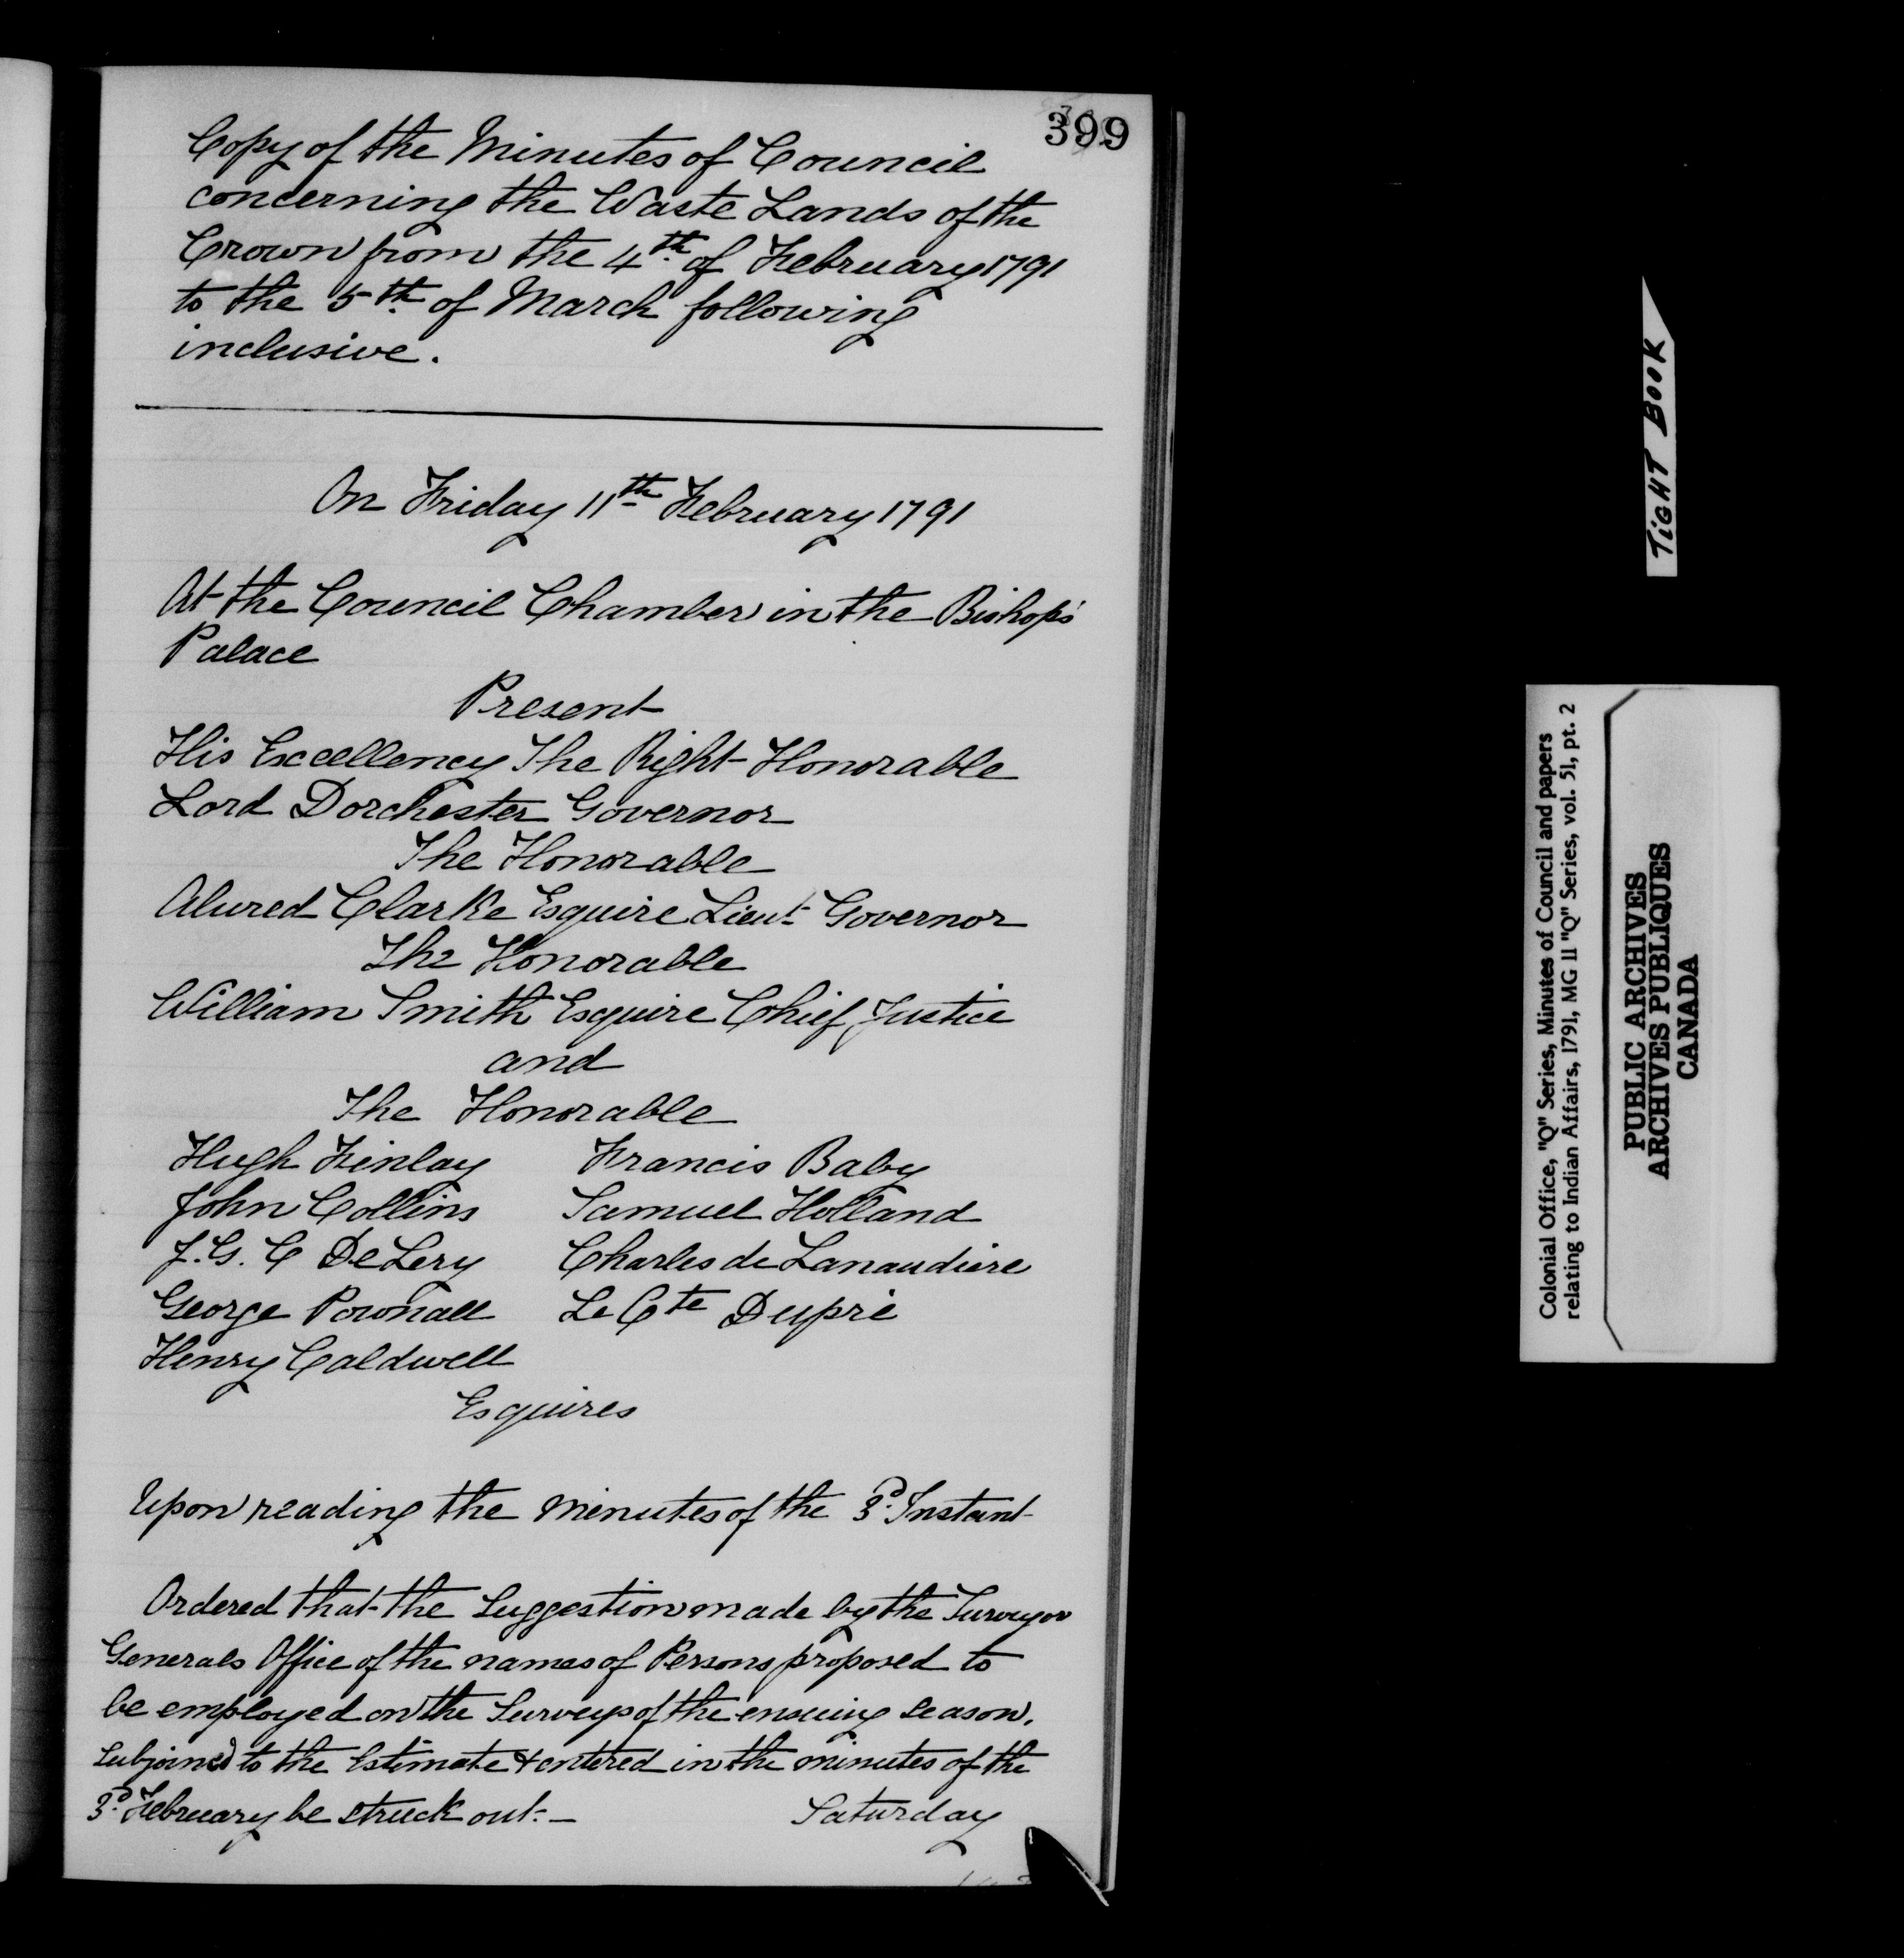 399
Copy of the Minutes of Council
concerning the Waste Lands of the
Crown from the 4th. of February 1791
to the 5th. of March following
inclusive.
On Friday 11th February 1791
At the Council Chamber in the Bishop's
Palace
Present
His Excellency The Right Honorable
Lord Dorchester Governor
The Honorable
Alured Clarke Esquire Lieut. Governor
The Honorable
William Smith Esquire Chief Justice
and
The Honorable
Hugh Finlay Francis Baby
John Collins Samuel Holland
J. G. C DeLery Charles de Lanaudière
George Pownall Le Cte Dupré
Henry Caldwell
Esquires
Upon reading the minutes of the 3d. Instant
Ordered that the Suggestion made by the Surveyor
Generals Office of the names of Persons proposed to
be employed on the Surveys of the ensuing season,
subjoined to the Estimate & entered in the minutes of the
3d. February be struck out. –
Saturday
TIGHT BOOK
Colonial Office, "Q" Series, Minutes of Council and papers
relating to Indian Affairs, 1791, MG 11 "Q" Series, vol. 51, pt. 2
PUBLIC ARCHIVES
ARCHIVES PUBLIQUES
CANADA